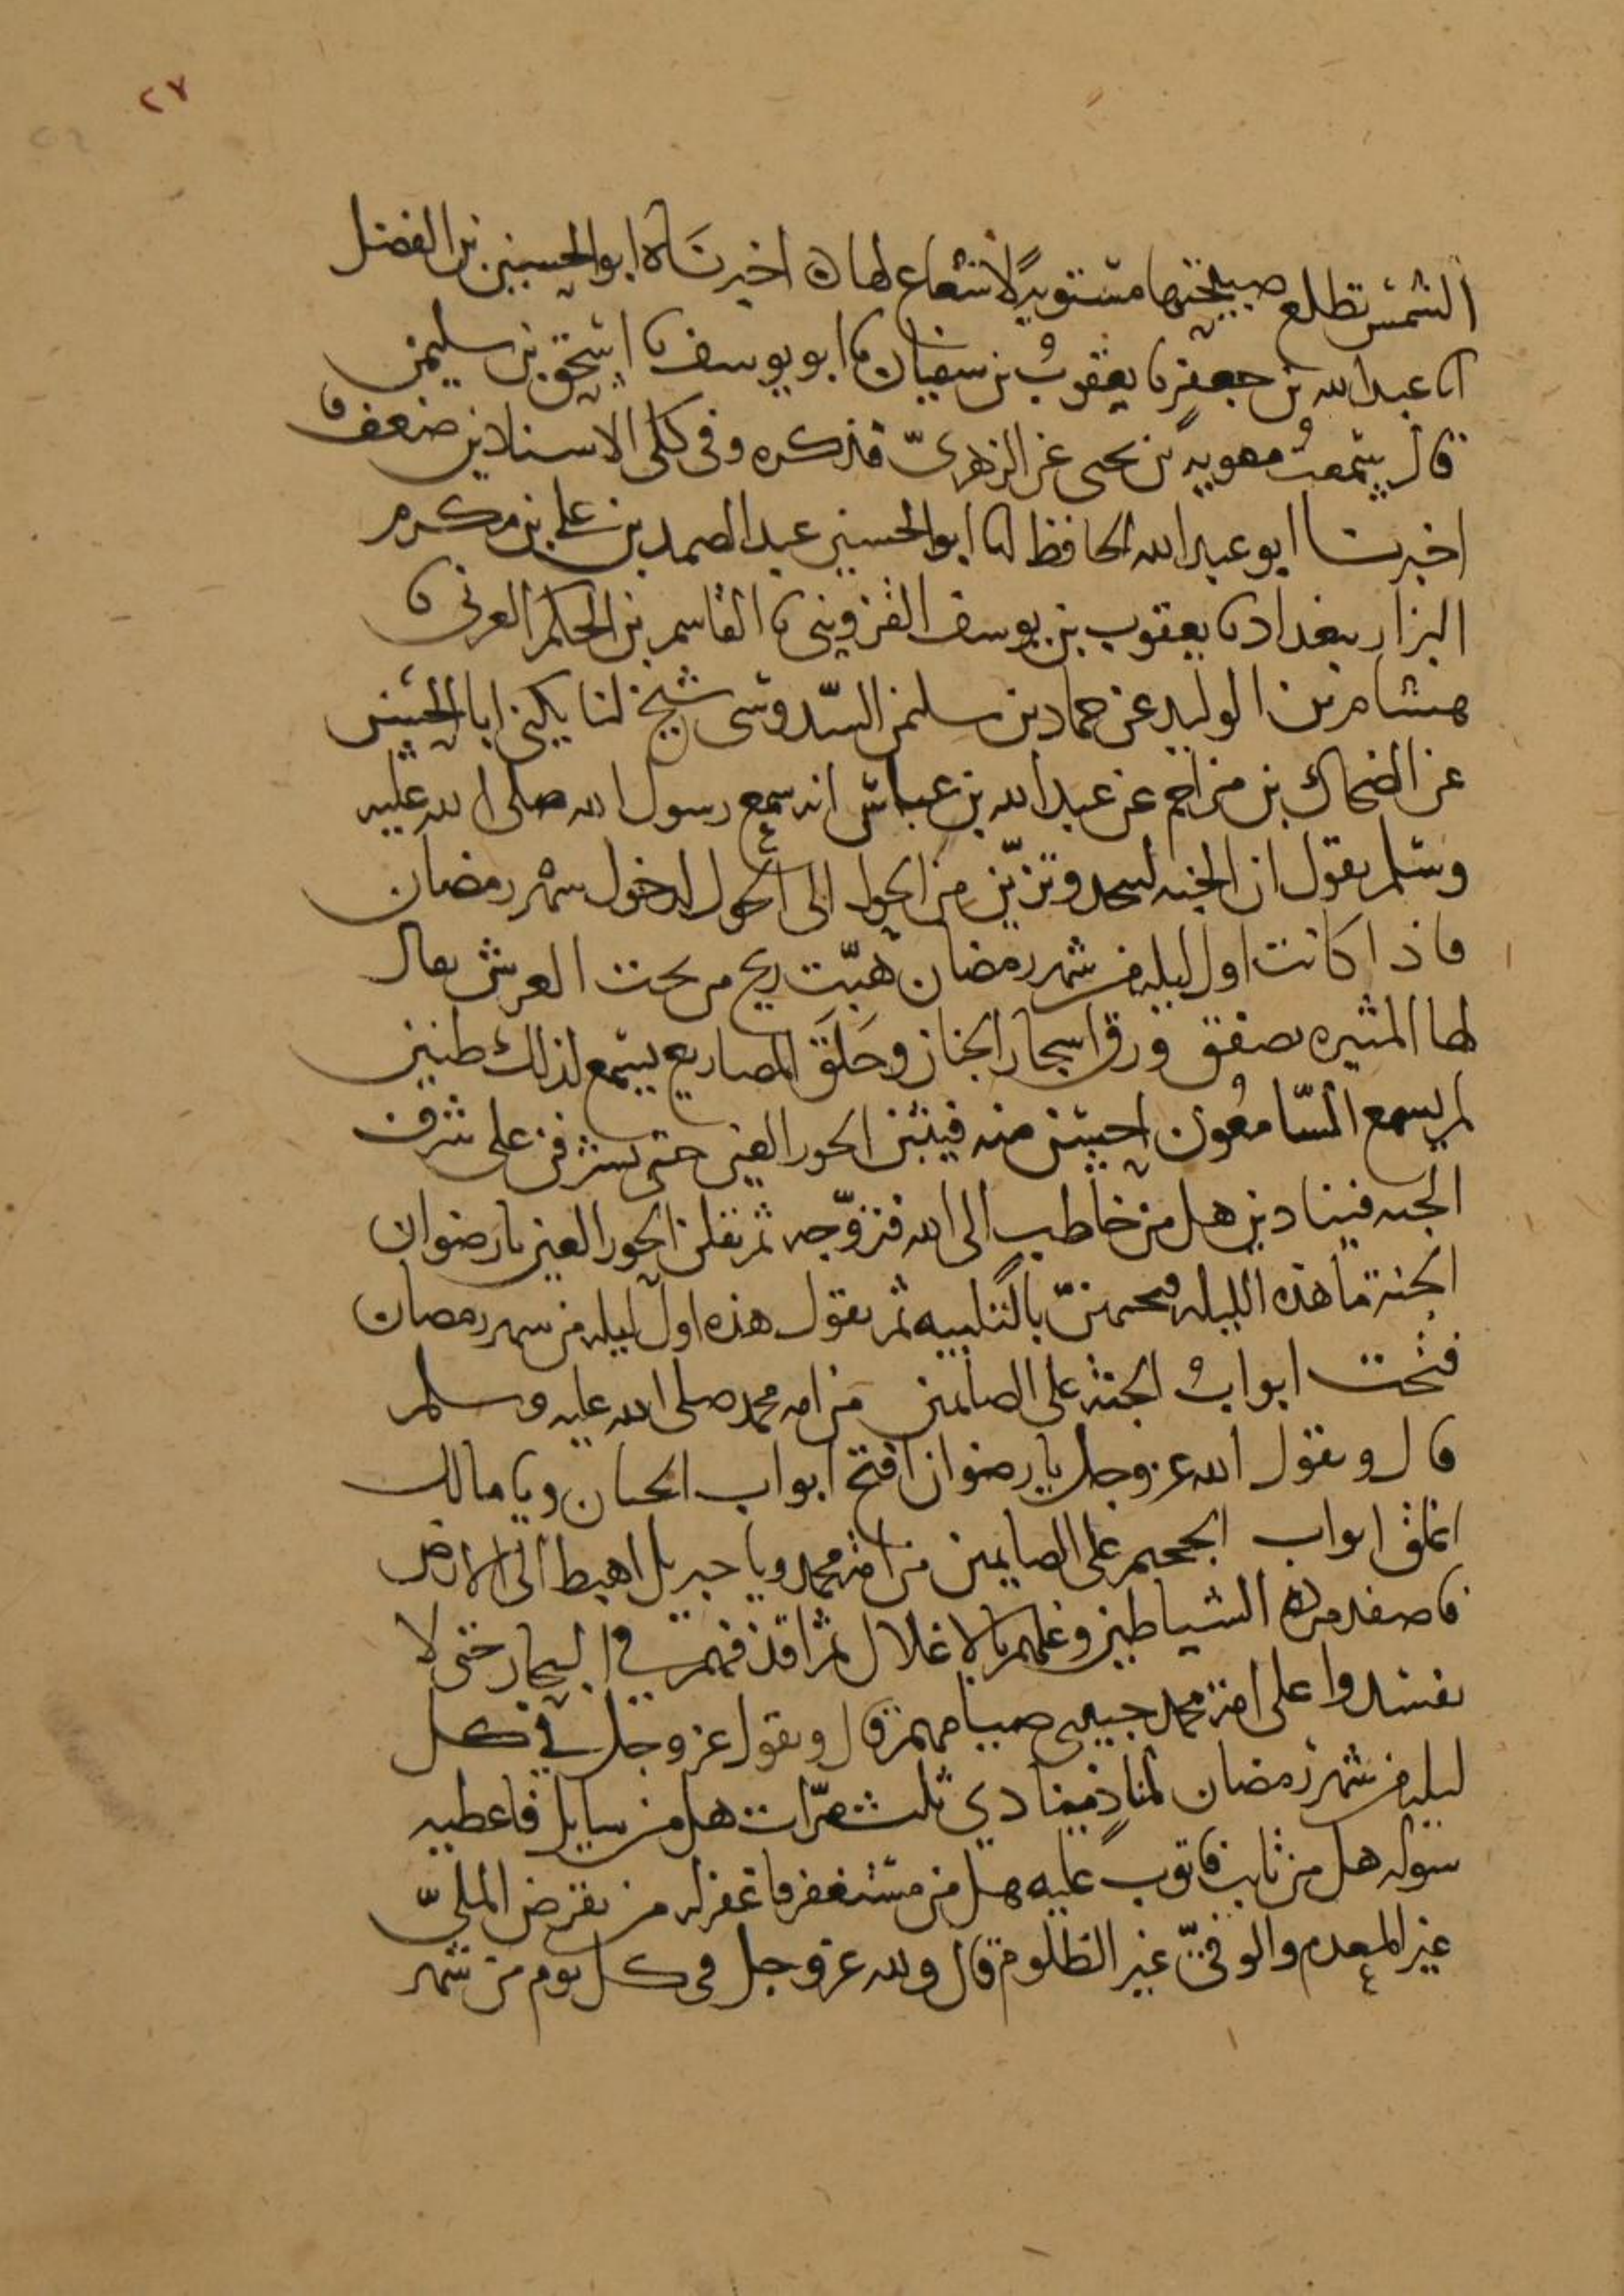 ٢٧
الشمس تطلع صبيحتها مستوية لا شعاع لها ه اخبرناه ابو الحسين بن الفضل
انا عبد الله بن جعفر نا يعقوب بن سفيان نا ابو يوسف نا اسحق بن سليمن
قال سمعت معوية بن يحيى عن الزهري فذكره وفي كلى الاسنادين ضعف
اخبرنا ابو عبد الله الحافظ انا ابو الحسين عبد الصمد بن علي بن مكرم
البزار ببغداد نا يعقوب بن يوسف القزويني نا القاسم بن الحكم العرني نا
هشام بن الوليد عن حماد بن سليمن السدوسي شيخ لنا يكنى ابا الحسن
عن الضحاك بن مزاحم عن عبد الله بن عباس انه سمع رسول الله صلى الله عليه
وسلم يقول ان الجنة لتنجد وتزين من الحول الى الحول لدخول شهر رمضان
فاذا كانت اول ليلة من شهر رمضان هبت ريح من تحت العرش يقال
لها المثيره تصفق ورق اشجار الجنان وحلق المصاريع يسمع لذلك طنين
لم يسمع السامعون احسن منه فيثبن الحور العين حتى يشرفن على شرف
الجنه فينادين هل من خاطب الى الله فنزوجه ثم يقلن الحور العين يا رضوان
الجنة ما هذه الليلة فيجيبهن بالتلبيه ثم يقول هذه اول ليلة من شهر رمضان
فتحت ابواب الجنة على الصائمين من امه محمد صلى الله عليه وسلم
قال ويقول الله عز وجل يا رضوان افتح ابواب الجنان ويا مالك
اغلق ابواب الجحيم على الصايمين من امة محمد ويا جبريل اهبط الى الارض
فاصفد مردة الشياطين وغلهم بالاغلال ثم اقذفهم في البحار حتى لا
يفسدوا على امة محمد حبيبي صيامهم قال ويقول عز وجل في كل
ليلة من شهر رمضان لمناد ينادي ثلث مرات هل من سايل فاعطيه
سوله هل من تايب فاتوب عليه هل من مستغفر فاغفر له من يقرض الملي
غير المعدم والوفي غير الظلوم قال ولله عز وجل في كل يوم من شهر